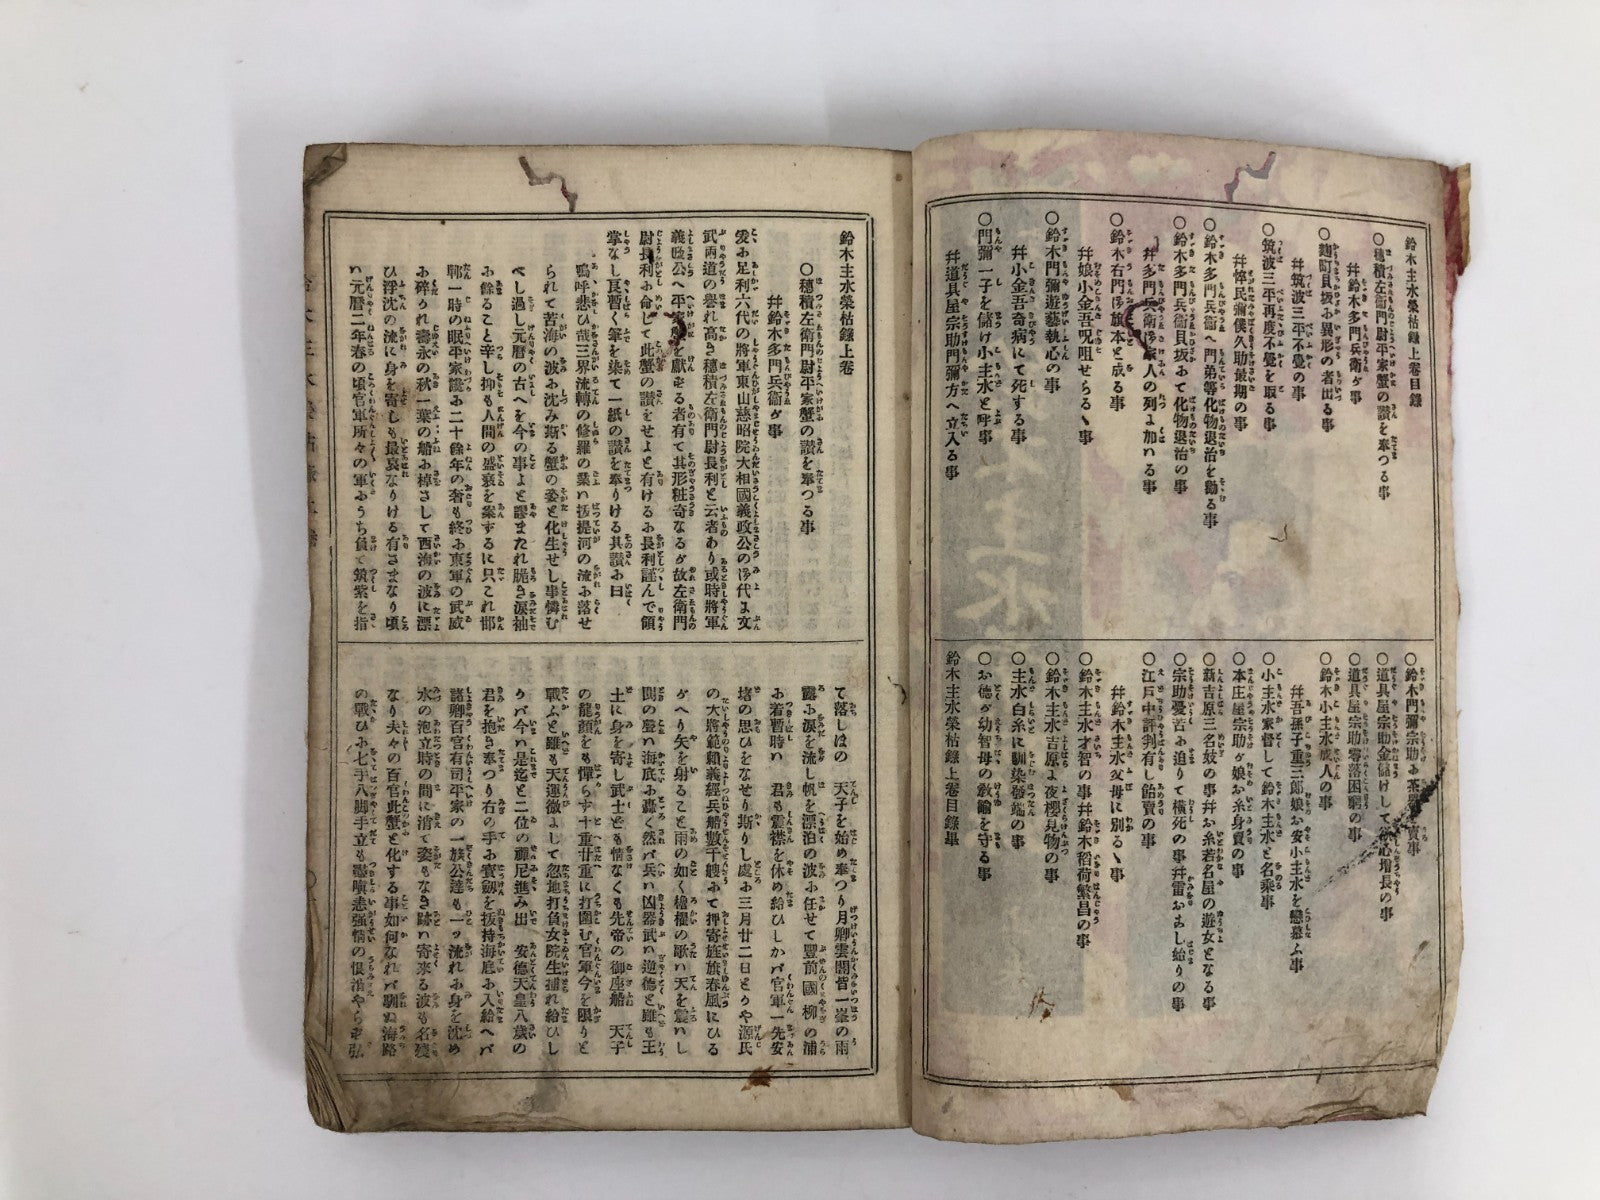 鈴木主水榮枯錄上卷目錄
〇穗積左衛門尉平家蟹の讃を奉つる事
幷鈴木多門兵衛が事
〇麹町貝坂ふ異形の者出る事
幷筑波三平不覺の事
〇筑波三平再度不覺を取る事
幷悴民彌僕久助最期の事
〇鈴木多門兵衛へ門弟等化物退治を勸る事
〇鈴木多門兵衛貝坂あて化物退治の事
幷多門兵衛御家人の列よ加はる事
〇鈴木右門御旗本と成る事
幷娘小金吾呪咀せらるゝ事
〇鈴木門彌遊藝執心の事
幷小金吾奇病にて死する事
〇門彌一子を儲け小主水と呼事
幷道具屋宗助門彌方へ立入る事
〇鈴木門彌宗助ふ茶器賣事
〇道具屋宗助金儲けして慾心增長の事
〇道具屋宗助零落困窮の事
〇鈴木小主水成人の事
幷吾孫子重三郎娘お安小主水を戀慕ふ事
〇小主水家督して鈴木主水と名乘事
〇本庄屋宗助が娘お糸身賣の事
〇新吉原三名妓の事幷お糸若名屋の遊女となる事
〇宗助憂苦ふ迫りて橫死の事幷雷おふし始りの事
〇江戸中評判有し飴賣の事
幷鈴木主水父母に別るゝ事
〇鈴木主水才智の事幷鈴木稻荷繁昌の事
〇鈴木主水吉原よ夜櫻見物の事
〇主水白糸に馴染發端の事
〇お德が幼智母の敎諭を守る事
鈴木主水榮枯錄上卷目錄畢
鈴木主水榮枯錄上卷
〇穗積左衛門尉平家蟹の讃を奉つる事
幷鈴木多門兵衛が事
爰お足利六代の將軍東山慈昭院大相國義政公の御代よ文
武兩道の譽れ高き穗積左衛門尉長利と云者あり或時將軍
義政公へ平家蟹を獻ずる者有て其形粧奇なるが故左衛門
尉長利お命じて此蟹の讃をせよと有けるお長利謹んで領
掌なし且暫く筆を染て一紙の讃を奉りける其讃お曰
嗚呼悲ひ哉三界流轉の修羅の業ハ抜提河の流お落せ
られて苦海の波お沈み斯る蟹の姿と化生せし事憐む
べし過し元曆の古へを今の事よと謬またれ脆き淚袖
お餘ること辛し抑も人間の盛衰を案ずるに只これ邯
鄲一時の眠平家髓お二十餘年の奢も終お東軍の武威
お碎られ壽永の秋一葉の船お棹さして西海の波に漂
ひ浮沈の流に身を寄しも最哀なりける有さまなり頃
ハ元曆二年春の頃官軍所々の軍おうち負て筑紫を指
て落しはの　天子を始め奉つり月卿雲閣皆一峯の雨
露ふ淚を流し帆を漂泊の波お任せて豐前國　柳の浦
お着暫時ハ　君も震襟を休め給ひしかバ官軍一先安
堵の思ひをなせり斯りし處お三月廿二日とりや源氏
の大將範賴義經兵船數千艘お乗て押寄旌旗春風にひる
がへり矢を射ること雨の如く檐櫂の歌ハ天を震ハし
鬨の聲ハ海底お轟く然バ兵ハ凶器武ハ逆德と雖も王
土に身を寄し武士とも情なくも先帝の御座船　天子
の龍顏をも憚らす十重廿重に打圍む官軍今を限りと
戰ふと雖も天運微よして忽地打負女院生捕れ給ひし
かバ今ハ是迄と二位の禪尼進み出　安德天皇八歲の
君を抱き奉つり右の手お寶劍を抜持海底お入給へバ
諸卿百官有司平家の一族公達も一ッ流れお身を沈め
水の泡立時の間に消て姿もなき跡ハ寄來る波も名殘
なり夫々の百官此蟹と化する事如何なれバ駒ハ海路
の戰ひふ七手八脚手立も